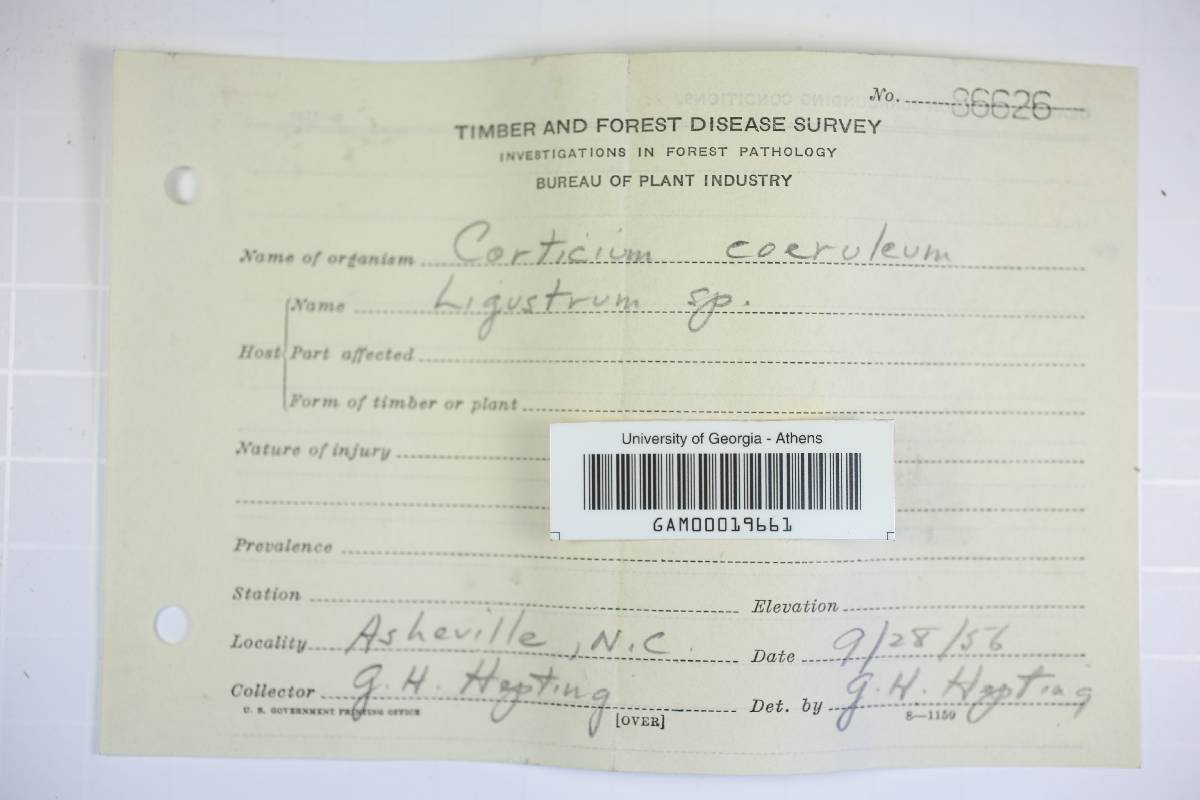 No. 86626
TIMBER AND FOREST DISEASE SURVEY
INVESTIGATIONS IN FOREST PATHOLOGY
BUREAU OF PLANT INDUSTRY
Name of organism Corticium coeruleum
Name Ligustrum sp.
Host Part affected
Form of timber or plant
Nature of injury
University of Georgia - Athens
GAM00019661
Prevalence
Station Elevation
Locality Asheville, N.C. Date 9/28/56
Collector G. H. Hepting Det. by G. H. Hepting
U. S. GOVERNMENT PRINTING OFFICE [OVER] 8—1159